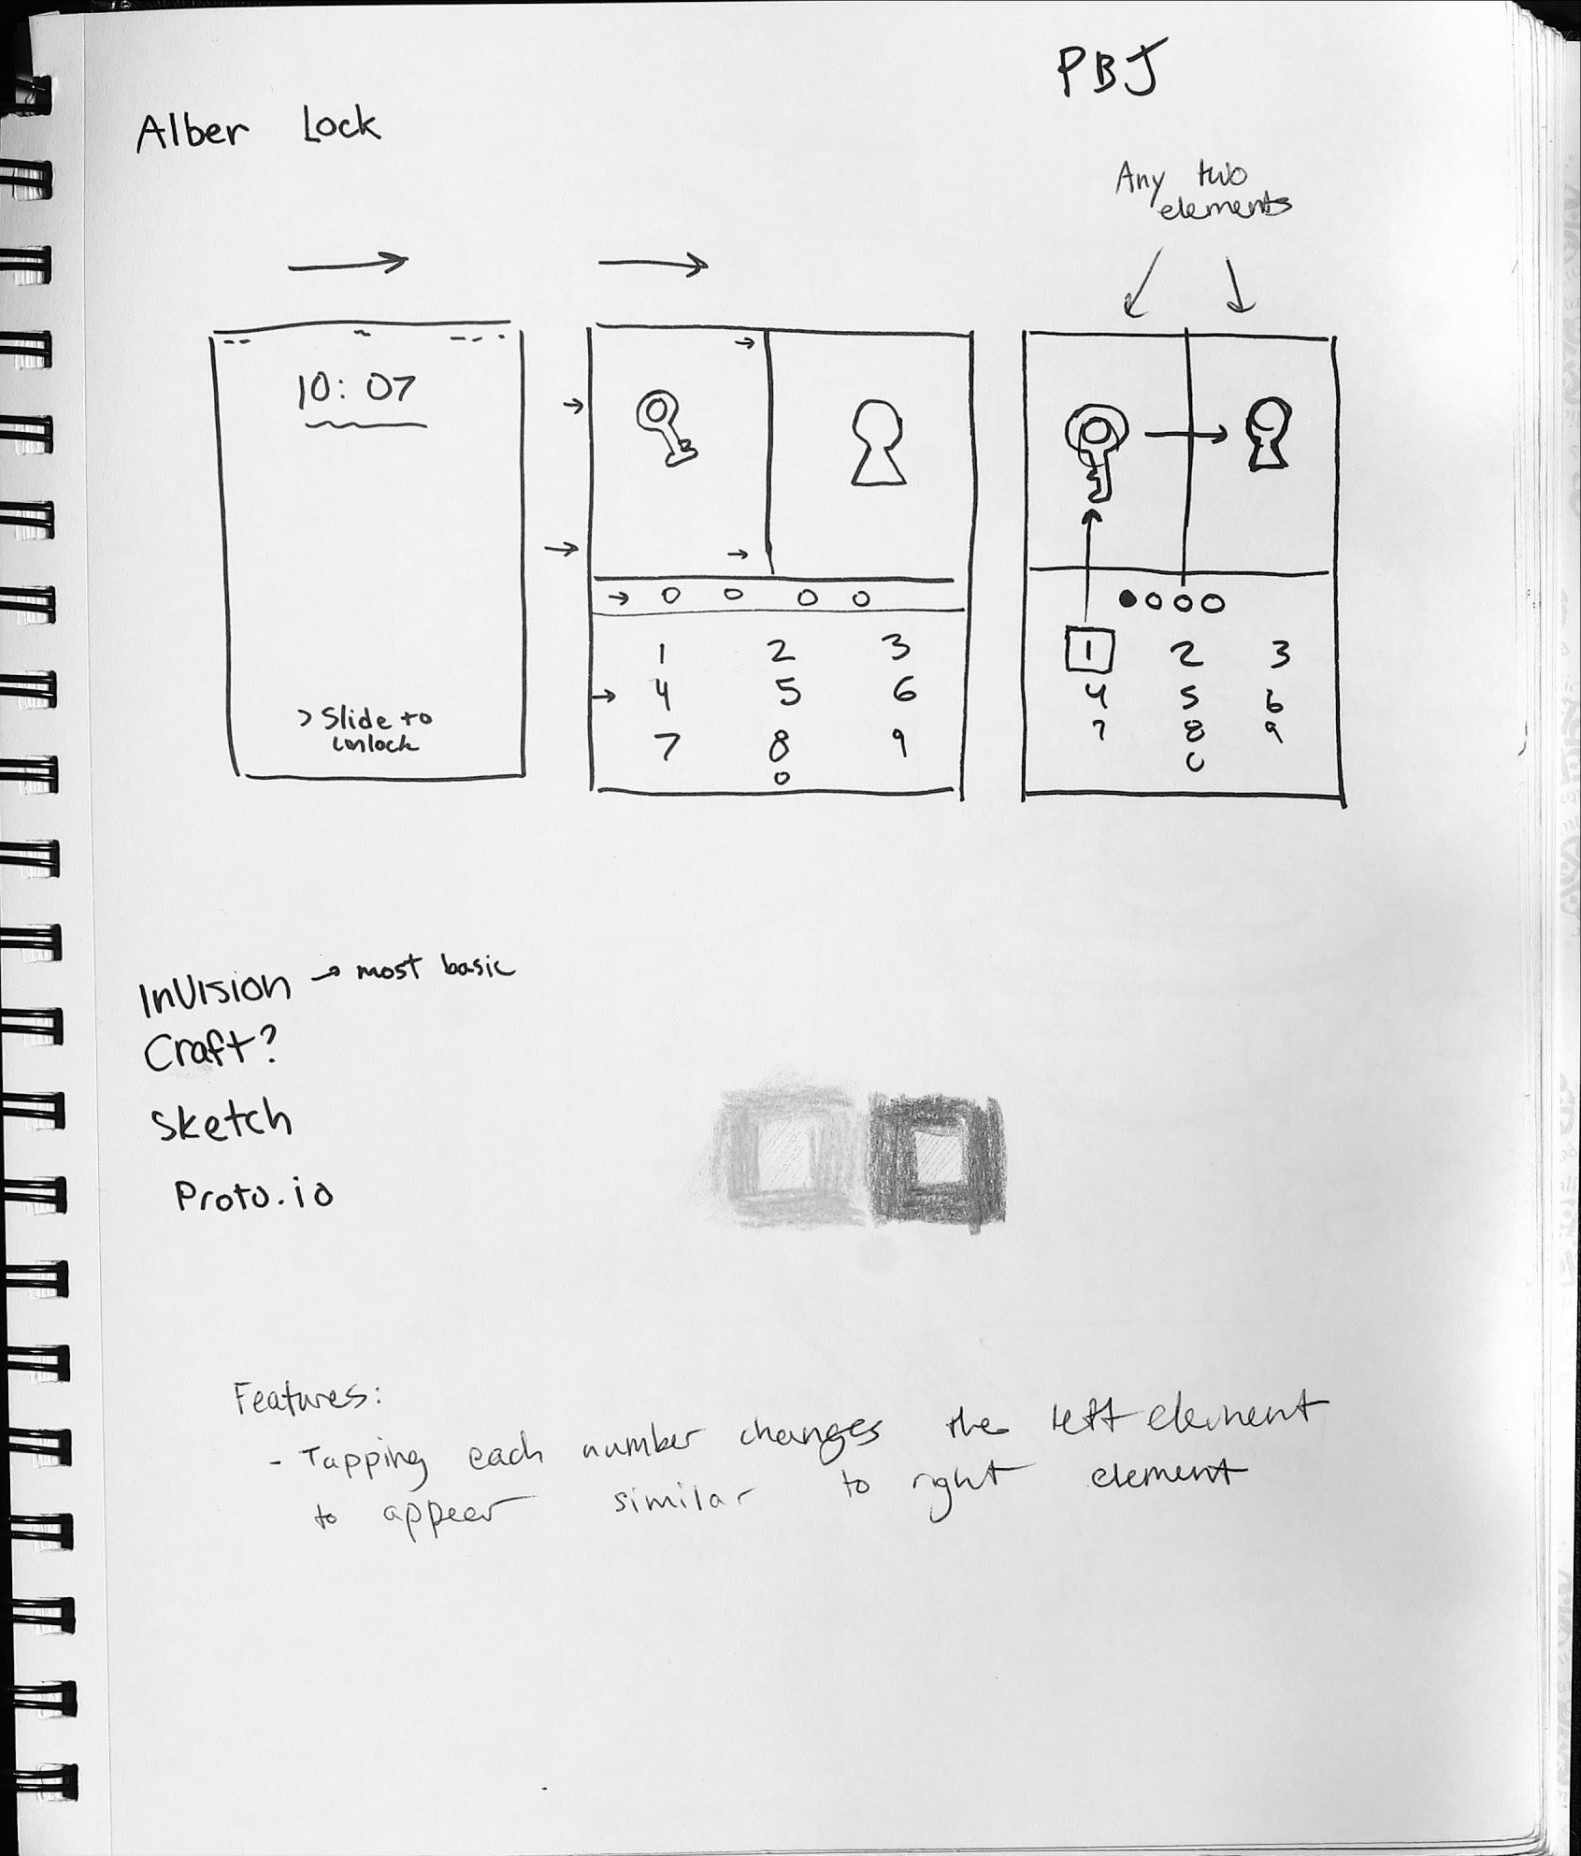 PBJ
Alber Lock
Any two
elements
10:07
> Slide to
unlock
1 2 3
4 5 6
7 8 9
0
1 2 3
4 5 6
7 8 9
0
InVision → most basic
Craft?
Sketch
Proto.io
Features:
- Tapping each number changes the left element
to appear similar to right element